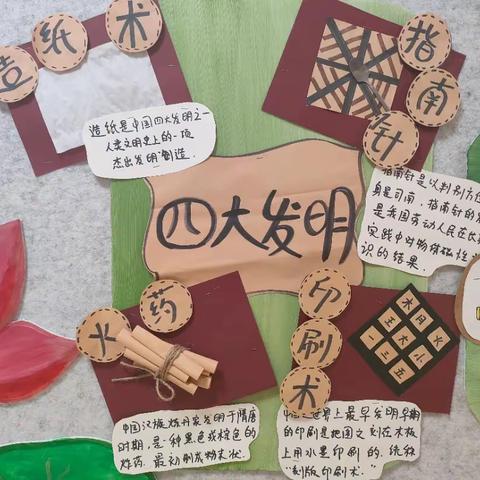 造纸术
造纸是中国四大发明之一
人类文明史上的一项
杰出发明创造.
指南针
指南针是以判别方位
身是司南,指南针的
是我国劳动人民在长
实践中对物体磁性
识的结果.
四大发明
火药
中国汉族炼丹家发明于隋唐
时期,是一种黑色或棕色的
炸药.最初制成粉末状.
印刷术
木日火
王大小
一三五
中国是世界上最早发明
的印刷是把图文刻在木板
上用水墨印刷的.统称
"刻版印刷术"